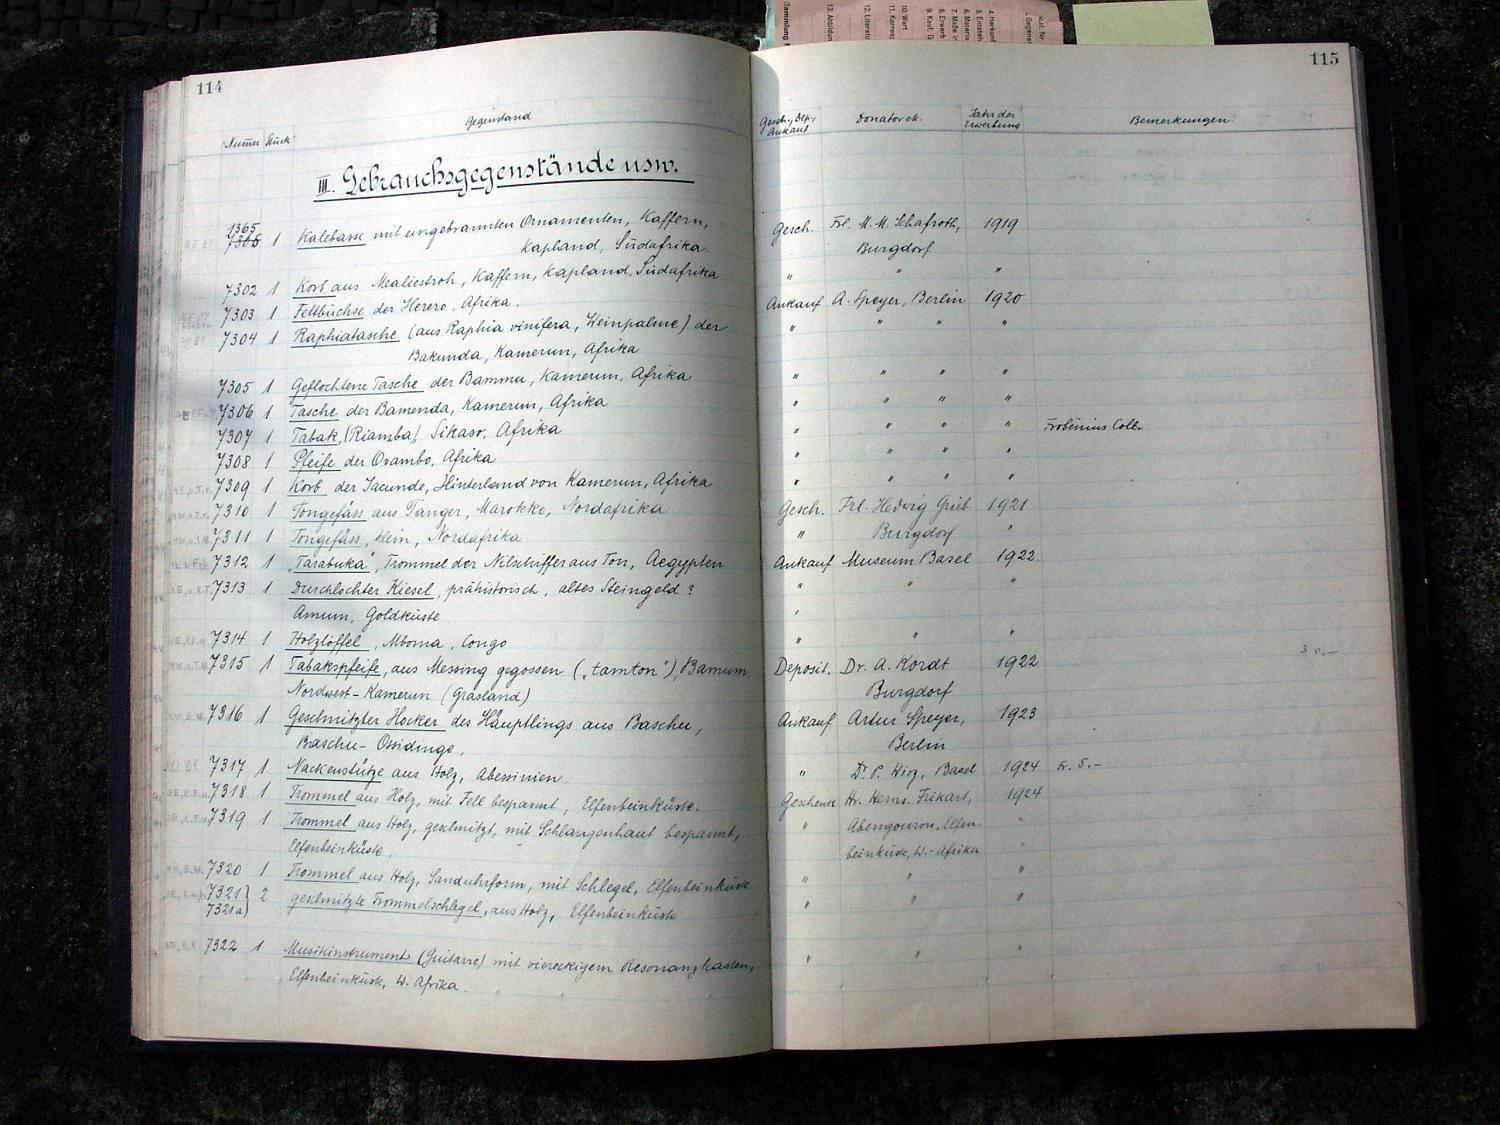 114
Gegenstand
Numer Stück
III. Gebrauchsgegenstände usw.
1365
7366 1 Kalebasse mit eingebrannten Ornamenten, Kaffern,
Kapland, Südafrika
7302 1 Korb aus Mealiestroh, Kaffern, Kapland, Südafrika
7303 1 Fettbüchse der Herero, Afrika.
7304 1 Raphiatasche (aus Raphia vinifera, Weinpalme) der
Bakunda, Kamerun, Afrika
7305 1 Geflochtene Tasche der Bammu, Kamerun, Afrika
7306 1 Tasche der Bamenda, Kamerun, Afrika
7307 1 Tabak, (Riamba) Sikaso, Afrika
7308 1 Pfeife der Ovambo, Afrika
7309 1 Korb der Jaunde, Hinterland von Kamerun, Afrika
7310 1 Tongefäss aus Tanger, Marokko, Nordafrika
7311 1 Tongefäss, klein, Nordafrika
7312 1 „Tarabuka", Trommel der Nilschiffer aus Ton, Aegypten
7313 1 Durchlochter Kiesel, prähistorisch, altes Steingeld?
Amum, Goldküste
7314 1 Holzlöffel, Mboma, Congo
7315 1 Tabakspfeife, aus Messing gegossen („tamton"), Bamum,
Nordwest-Kamerun (Grasland)
7316 1 Geschnitzter Hocker des Häuptlings aus Baschu,
Baschu-Ossidinge,
7317 1 Nackenstütze aus Holz, Abessinien.
7318 1 Trommel aus Holz, mit Fell bespannt, Elfenbeinküste.
7319 1 Trommel aus Holz, geschnitzt, mit Schlangenhaut bespannt,
Elfenbeinküste.
7320 1 Trommel aus Holz, Sanduhrform, mit Schlegel, Elfenbeinküste
7321 } 2 geschnitzte Trommelschlegel, aus Holz, Elfenbeinküste
7321a)
7322 1 Musikinstrument (Guitarre) mit viereckigem Resonanzkasten,
Elfenbeinküste, W. Afrika.
115
Gesch., Dep., Ankauf Donator ek. Jahr der Erwerbung Bemerkungen
Gesch. Frl. M. M. Schafroth, 1919
Burgdorf
" " "
Ankauf A. Speyer, Berlin 1920
" " " "
" " " "
" " " "
" " " " Frobenius Coll.
" " " "
" " " "
Gesch. Frl. Hedwig Grieb 1921
" Burgdorf "
Ankauf Museum Basel 1922.
" " "
" " "
Deposit. Dr. A. Kordt 1922 30.—
Burgdorf
Ankauf Artur Speyer, 1923
Berlin
" Dr. P. Wirz, Basel 1924 Fr. 5.-
Geschenk Hr. Herm. Frikart, 1924
" Abengourou, Elfen- "
beinküste, W.-Afrika "
" " "
" " "
" " "
Sammlung
13. Abbildun
12. Literatu
11. Korresp
10. Wert
9. Kauf, G
8. Erwerb
7. Maße in
6. Materia
5. Entsteh
4. Herkunf
Gegenst
Kat. Nr.